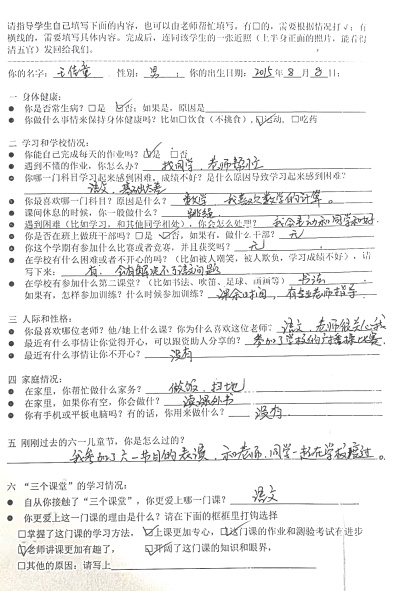 请指导学生自己填写下面的内容，也可以由老师帮忙填写。有□的，需要根据情况打√；有
横线的，需要填写具体内容。完成后，连同该学生的一张近照（上半身正面的照片，能看得
清五官）发回给我们。
你的名字： 性别：男 ；你的出生日期：2015年8月8日；
一 身体健康：
● 你是否常生病？□是 ☑否；如果是，原因是
● 你做什么事情来保持身体健康？比如□饮食（不挑食），☑运动，□吃药
二 学习和学校情况：
● 你能自己完成每天的作业吗？☑是 □否
● 遇到不懂的作业，你怎么办？ 找同学，老师帮忙
● 你哪一门科目学习起来感到困难，成绩不好？是什么原因导致学习起来感到困难？
语文，基础太差
● 你最喜欢哪一门科目？原因是什么？ 数学，我喜欢数学的计算。
● 课间休息的时候，你一般做什么？ 跳绳
● 遇到困难（比如学习，和其他同学相处），你会怎么处理？ 我会主动和同学和好.
● 你是否在班上做班干部吗？□是 ☑否，如果有，做什么干部？ 无
● 你这个学期有参加什么比赛或者竞赛，并且获奖吗？ 无
● 在学校有什么困难或者不开心的吗？（比如被人嘲笑，被人欺负，学习成绩不好），请
写下来： 有. 会有解决不了语文问题
● 在学校有参加什么第二课堂？（比如书法、吹笛、足球、画画等） 书法
如果有，怎样参加训练？什么时候参加训练？ 课余时间，有专业老师指导
三 人际和性格：
● 你最喜欢哪位老师？他/她上什么课？你为什么喜欢这位老师？ 语文，老师很关心我
● 最近有什么事情让你觉得开心，可以跟资助人分享的？ 参加了学校的广播操比赛.
● 最近有什么事情让你不开心？ 没有
四 家庭情况：
● 在家里，你帮忙做什么家务？ 做饭，扫地
● 在家里，如果你有空，你会做什？ 读课外书
● 你有手机或平板电脑吗？有的话，你用来做什么？ 没有
五 刚刚过去的六一儿童节，你是怎么过的？
我参加了六一节目的表演，和老师，同学一起在学校度过。
六 “三个课堂”的学习情况：
● 自从你接触了“三个课堂”，你更爱上哪一门课？ 语文
● 你更爱上这一门课的理由是什么？请在下面的框框里打钩选择
□掌握了这门课的学习方法， ☑上课更加专心，☑这门课的作业和测验考试在进步
☑老师讲课更加有趣了， ☑开阔了这门课的知识和眼界，
□其他的原因：请写上